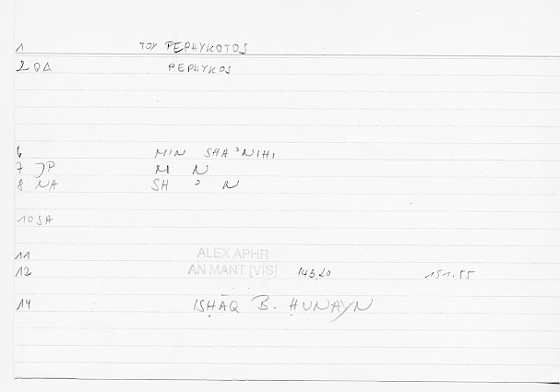 1 ΤΟΥ PEPHYKOTOS
2 QA PEPHYKOS
6 MIN SHA'NIHI
7 JP M N
8 NA SH ' N
10 SA
11 ALEX APHR
12 AN MANT [VIS] 143,20 151.55
14 ISḤĀQ B. ḤUNAYN